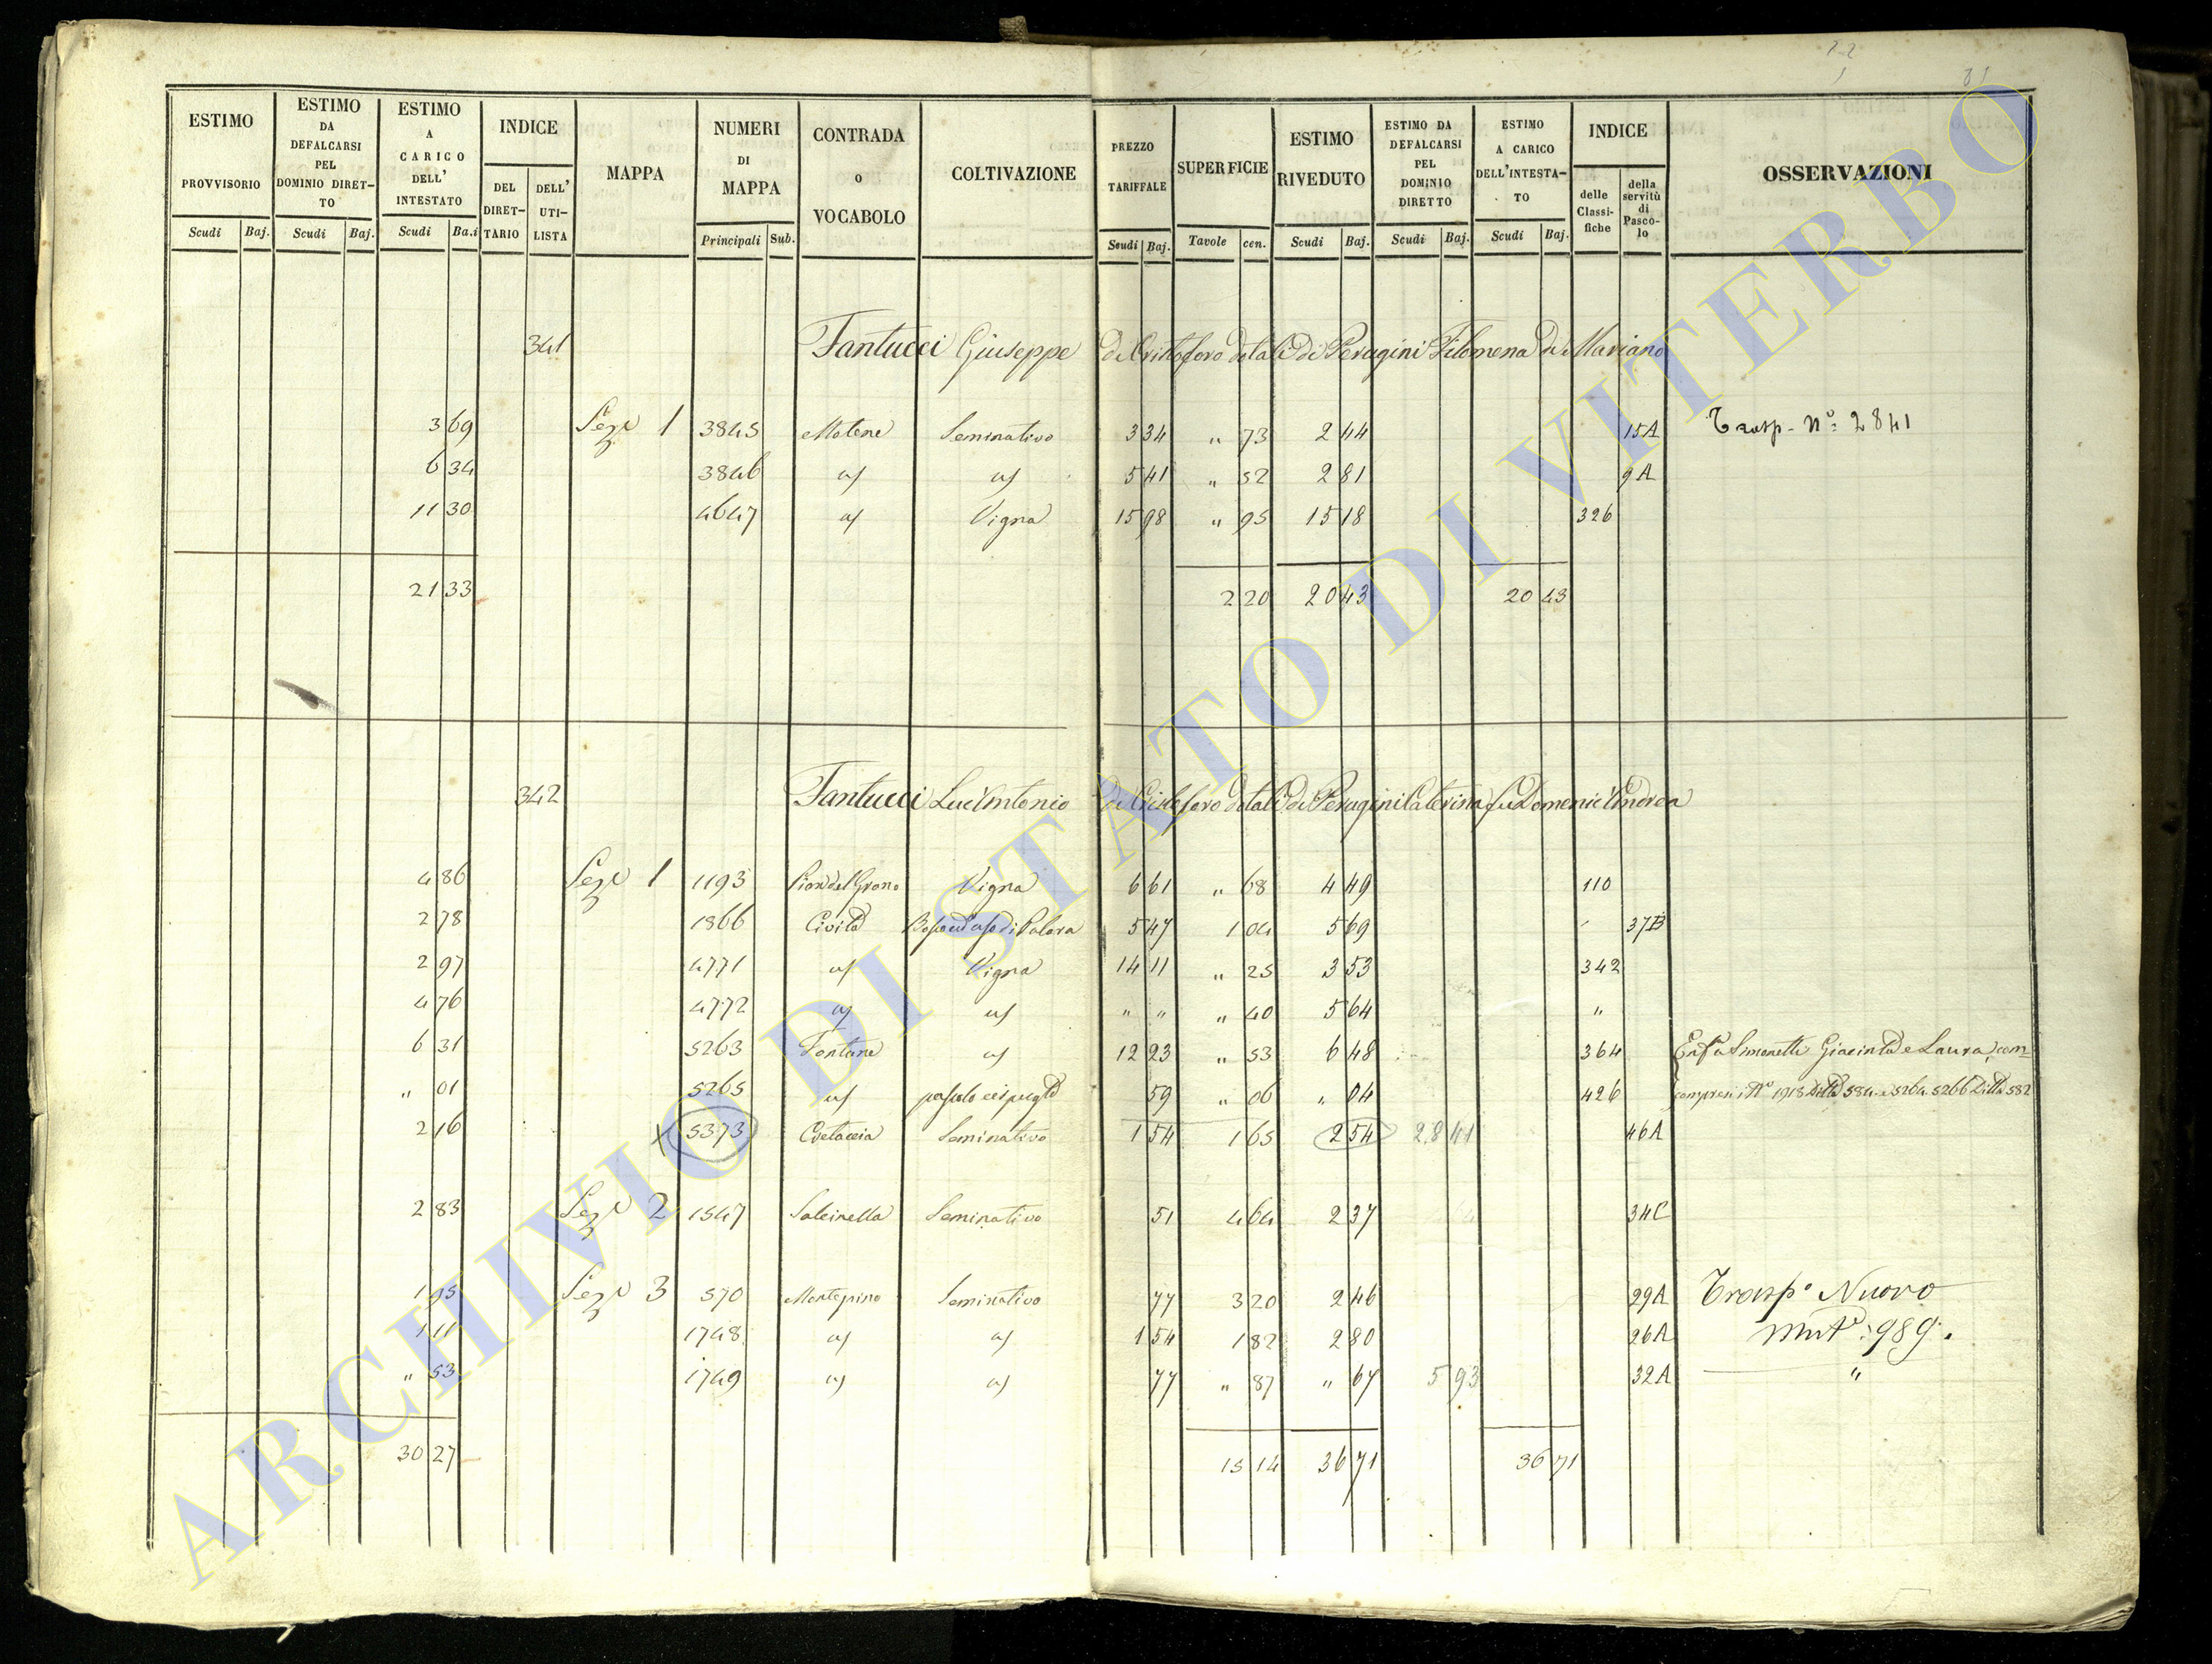 ESTIMO PROVVISORIO
ESTIMO DA DEFALCARSI PEL DOMINIO DIRET-TO
ESTIMO A CARICO DELL' INTESTATO
INDICE
DEL DIRET-TARIO
DELL' UTI-LISTA
MAPPA
NUMERI DI MAPPA
CONTRADA o VOCABOLO
COLTIVAZIONE
PREZZO TARIFFALE
SUPERFICIE
ESTIMO RIVEDUTO
ESTIMO DA DEFALCARSI PEL DOMINIO DIRETTO
ESTIMO A CARICO DELL'INTESTA-TO
INDICE
delle Classi-fiche
della servitù di Pasco-lo
OSSERVAZIONI
Scudi Baj. Scudi Baj. Scudi Ba.i Principali Sub. Scudi Baj. Tavole cen. Scudi Baj. Scudi Baj. Scudi Baj.
341 Fantucci Giuseppe di Cristoforo dotali di Perugini Filomena di Mariano
3 69 Sez.e 1 3845 Seminativo 3 34 " 73 2 44 15A Trasp. N.º 2841
6 34 3846 5 41 " 52 2 81 9A
11 30 4647 Vigna 15 98 " 95 15 18 326
21 33 2 20 20 43 20 43
342 Fantucci Luc'Antonio di Cristoforo dotali di Perugini Caterina fu Domenic'Andrea
4 86 Sez.e 1 1193 Vigna 6 61 " 68 4 49 110
2 78 1866 Civita 5 47 1 04 5 69 37B
2 97 4771 Vigna 14 11 " 25 3 53 342
4 76 4772 " " " 40 5 64 "
6 31 5263 Fontane 12 23 " 53 6 48 364 Simonetti Giacinta e Laura
" 01 5265 59 " 06 " 04 426 5264 5266 Ditta 582
2 16 X 5373 Seminativo 1 54 1 65 2 54 2 841 46A
2 83 Sez.e 2 1547 Salcinella Seminativo 51 4 64 2 37 34C
1 95 Sez.e 3 570 Montepino Seminativo 77 3 20 2 46 29A Trasp.º Nuovo
1 11 1748 1 54 1 82 2 80 26A Mut.ª 989.
" 53 1749 77 " 87 " 67 5 93 32A "
30 27 15 14 36 71 36 71
ARCHIVIO DI STATO DI VITERBO